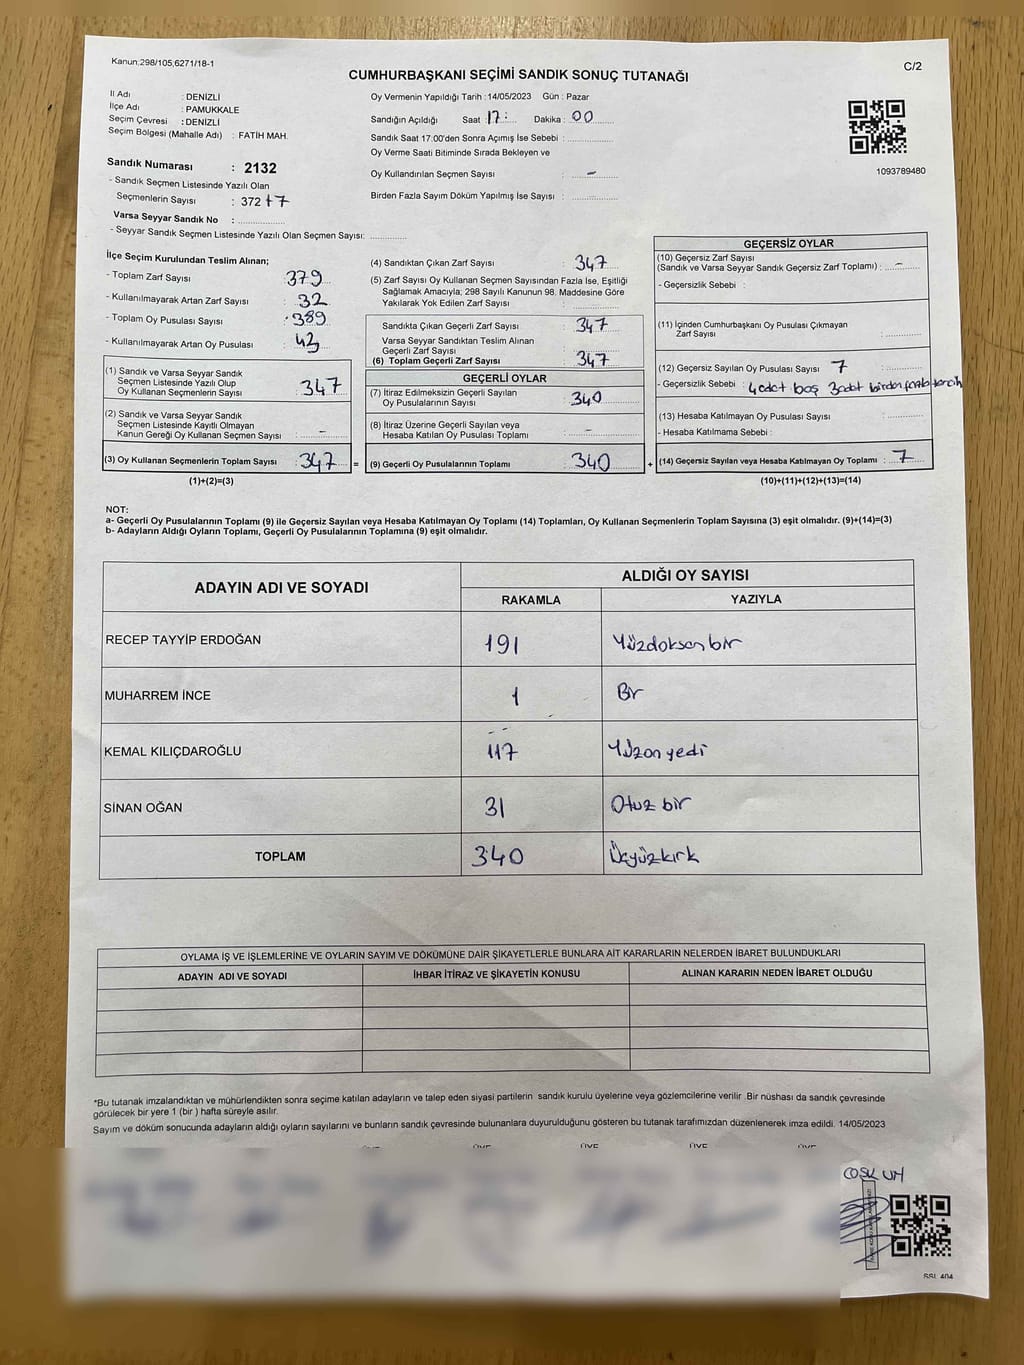 Kanun:298/105,6271/18-1
C/2
CUMHURBAŞKANI SEÇİMİ SANDIK SONUÇ TUTANAĞI
İl Adı : DENİZLİ
İlçe Adı : PAMUKKALE
Seçim Çevresi : DENİZLİ
Seçim Bölgesi (Mahalle Adı) : FATİH MAH.
Sandık Numarası : 2132
- Sandık Seçmen Listesinde Yazılı Olan
Seçmenlerin Sayısı : 372 +7
Varsa Seyyar Sandık No :
- Seyyar Sandık Seçmen Listesinde Yazılı Olan Seçmen Sayısı:
Oy Vermenin Yapıldığı Tarih :14/05/2023 Gün : Pazar
Sandığın Açıldığı Saat 17: Dakika : 00
Sandık Saat 17.00'den Sonra Açımış İse Sebebi :
Oy Verme Saati Bitiminde Sırada Bekleyen ve
Oy Kullandırılan Seçmen Sayısı : -
Birden Fazla Sayım Döküm Yapılmış İse Sayısı :
1093789480
İlçe Seçim Kurulundan Teslim Alınan;
- Toplam Zarf Sayısı : 379
- Kullanılmayarak Artan Zarf Sayısı : 32
- Toplam Oy Pusulası Sayısı : 389
- Kullanılmayarak Artan Oy Pusulası : 42
(1) Sandık ve Varsa Seyyar Sandık
Seçmen Listesinde Yazılı Olup
Oy Kullanan Seçmenlerin Sayısı : 347
(2) Sandık ve Varsa Seyyar Sandık
Seçmen Listesinde Kayıtlı Olmayan
Kanun Gereği Oy Kullanan Seçmen Sayısı : -
(3) Oy Kullanan Seçmenlerin Toplam Sayısı : 347
(1)+(2)=(3)
(4) Sandıktan Çıkan Zarf Sayısı : 347
(5) Zarf Sayısı Oy Kullanan Seçmen Sayısından Fazla İse, Eşitliği
Sağlamak Amacıyla; 298 Sayılı Kanunun 98. Maddesine Göre
Yakılarak Yok Edilen Zarf Sayısı :
Sandıkta Çıkan Geçerli Zarf Sayısı : 347
Varsa Seyyar Sandıktan Teslim Alınan
Geçerli Zarf Sayısı :
(6) Toplam Geçerli Zarf Sayısı : 347
GEÇERLİ OYLAR
(7) İtiraz Edilmeksizin Geçerli Sayılan
Oy Pusulalarının Sayısı : 340
(8) İtiraz Üzerine Geçerli Sayılan veya
Hesaba Katılan Oy Pusulası Toplamı : -
= (9) Geçerli Oy Pusulalarının Toplamı : 340 +
GEÇERSİZ OYLAR
(10) Geçersiz Zarf Sayısı
(Sandık ve Varsa Seyyar Sandık Geçersiz Zarf Toplamı) : -
- Geçersizlik Sebebi :
(11) İçinden Cumhurbaşkanı Oy Pusulası Çıkmayan
Zarf Sayısı :
(12) Geçersiz Sayılan Oy Pusulası Sayısı : 7
- Geçersizlik Sebebi : 4 adet boş 3 adet birden fazla tercih
(13) Hesaba Katılmayan Oy Pusulası Sayısı :
- Hesaba Katılmama Sebebi :
(14) Geçersiz Sayılan veya Hesaba Katılmayan Oy Toplamı : 7
(10)+(11)+(12)+(13)=(14)
NOT:
a- Geçerli Oy Pusulalarının Toplamı (9) ile Geçersiz Sayılan veya Hesaba Katılmayan Oy Toplamı (14) Toplamları, Oy Kullanan Seçmenlerin Toplam Sayısına (3) eşit olmalıdır. (9)+(14)=(3)
b- Adayların Aldığı Oyların Toplamı, Geçerli Oy Pusulalarının Toplamına (9) eşit olmalıdır.
ADAYIN ADI VE SOYADI
ALDIĞI OY SAYISI
RAKAMLA YAZIYLA
RECEP TAYYİP ERDOĞAN 191 Yüzdoksan bir
MUHARREM İNCE 1 Bir
KEMAL KILIÇDAROĞLU 117 Yüzon yedi
SİNAN OĞAN 31 Otuz bir
TOPLAM 340 Üçyüzkırk
OYLAMA İŞ VE İŞLEMLERİNE VE OYLARIN SAYIM VE DÖKÜMÜNE DAİR ŞİKAYETLERLE BUNLARA AİT KARARLARIN NELERDEN İBARET BULUNDUKLARI
ADAYIN ADI VE SOYADI İHBAR İTİRAZ VE ŞİKAYETİN KONUSU ALINAN KARARIN NEDEN İBARET OLDUĞU
*Bu tutanak imzalandıktan ve mühürlendikten sonra seçime katılan adayların ve talep eden siyasi partilerin sandık kurulu üyelerine veya gözlemcilerine verilir .Bir nüshası da sandık çevresinde
görülecek bir yere 1 (bir ) hafta süreyle asılır.
Sayım ve döküm sonucunda adayların aldığı oyların sayılarını ve bunların sandık çevresinde bulunanlara duyurulduğunu gösteren bu tutanak tarafımızdan düzenlenerek imza edildi. 14/05/2023
ÜYE ÜYE ÜYE ÜYE
COŞKUN